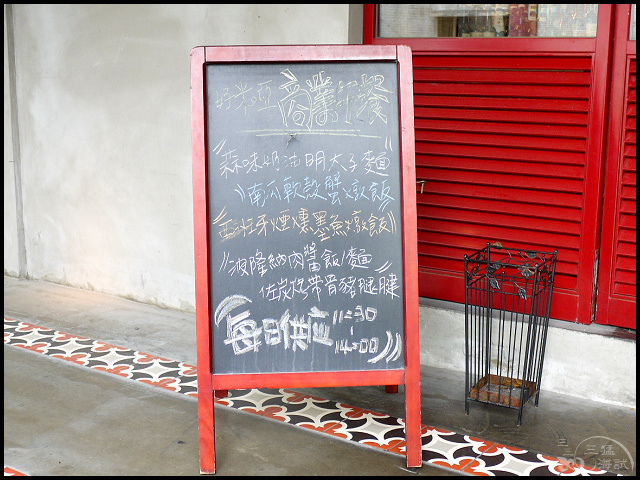 好米亞 商業午餐
蒜味奶油明太子麵
南瓜軟殼蟹燉飯
西班牙煙燻墨魚燉飯
波隆納肉醬飯/麵
佐炭烤帶骨豬腿腱
每日供應 11:30
|
14:00
三猛
海試